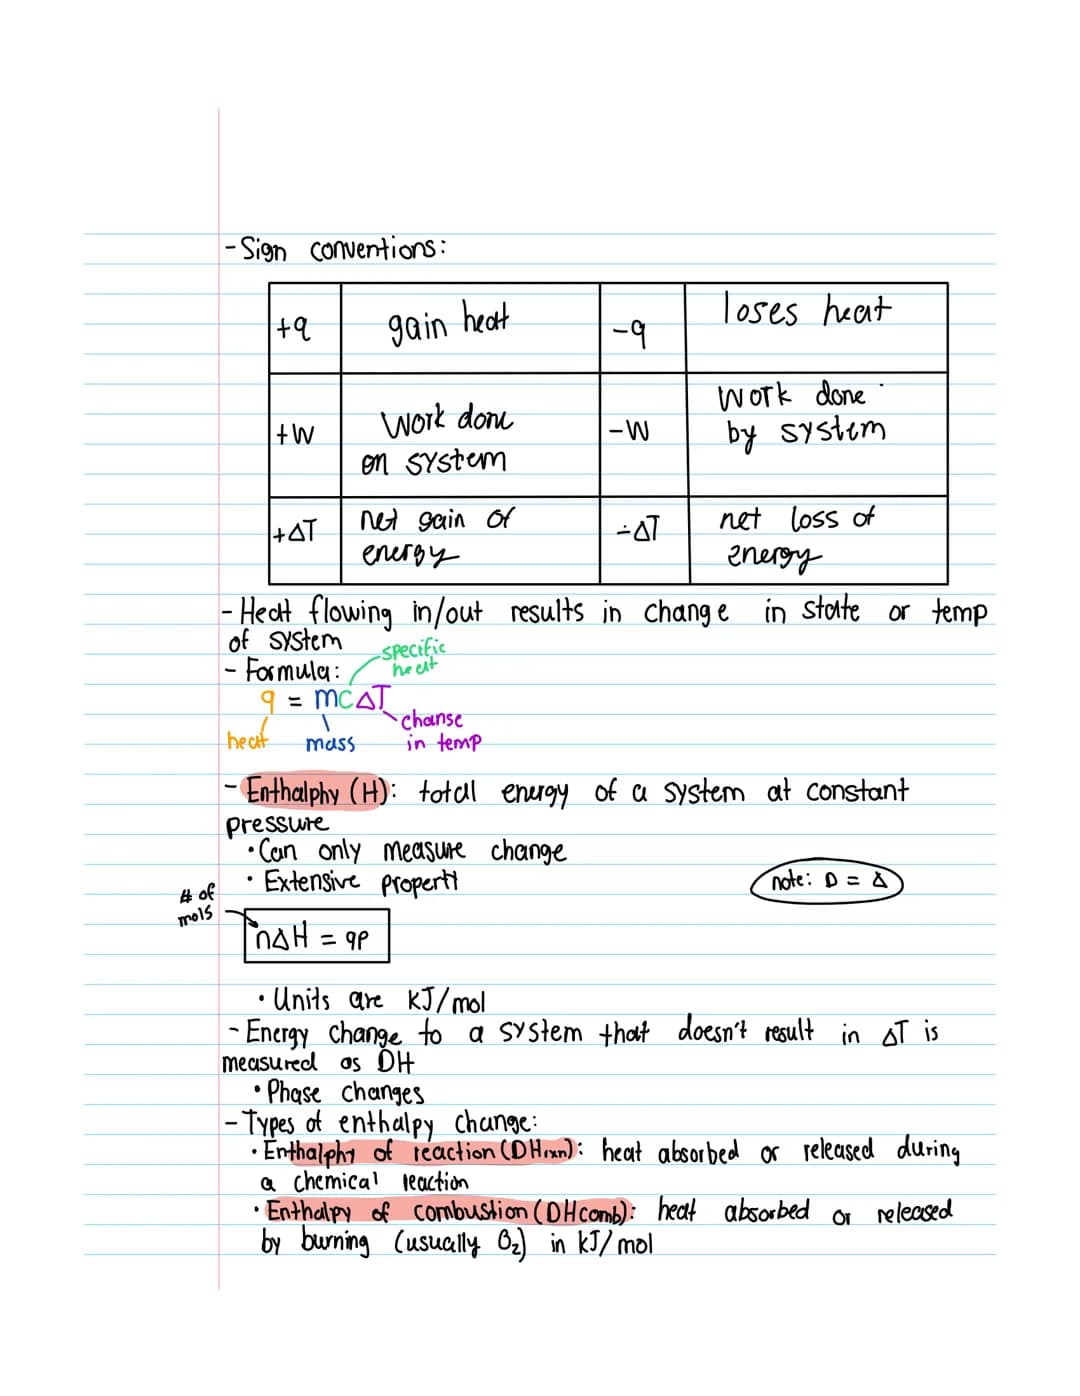 - Sign conventions:
+q gain heat -q loses heat
+W Work done on system -W Work done by system
+ΔT net gain of energy -ΔT net loss of energy
- Heat flowing in/out results in change in state or temp
of system
- Formula:
specific
heat
q = mcΔT
heat mass change
in temp
- Enthalphy (H): total energy of a system at constant
pressure
• Can only measure change
• Extensive property
note: D = Δ
# of
mols
nΔH = qp
• Units are KJ/mol
- Energy change to a system that doesn't result in ΔT is
measured as DH
• Phase changes
- Types of enthalpy change:
• Enthalphy of reaction (DHrxn): heat absorbed or released during
a chemical reaction
• Enthalpy of combustion (DHcomb): heat absorbed or released
by burning (usually O2) in kJ/mol